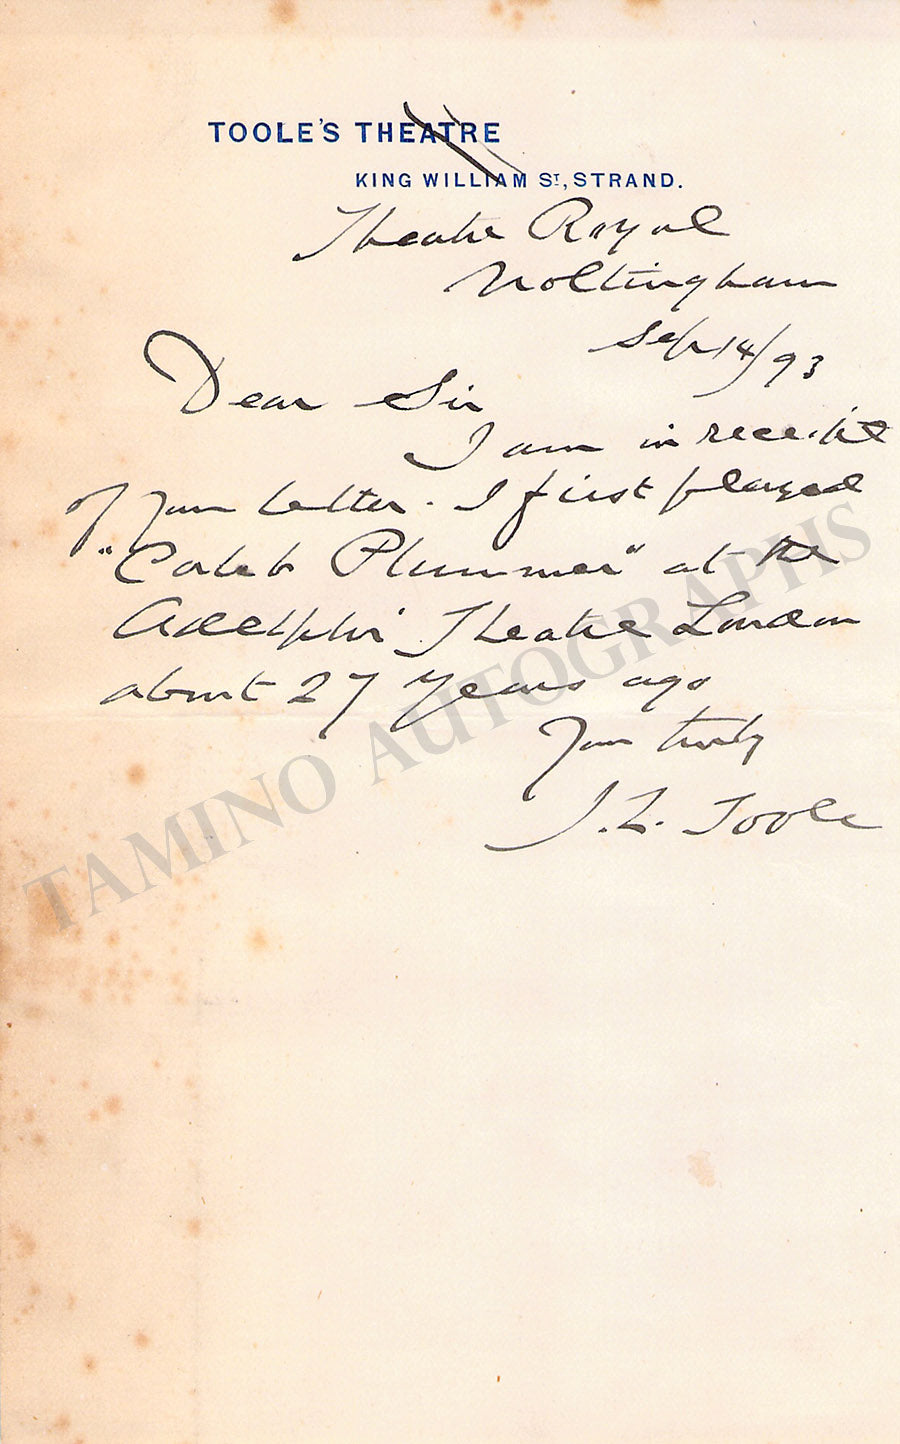 TOOLE'S THEATRE
KING WILLIAM ST, STRAND.
Theatre Royal
Nottingham
Sep 14/93
Dear Sir
I am in receipt
of your letter. I first played
"Caleb Plummer" at the
Adelphi Theatre London
about 27 years ago
Yours truly
J. L. Toole
TAMINO AUTOGRAPHS